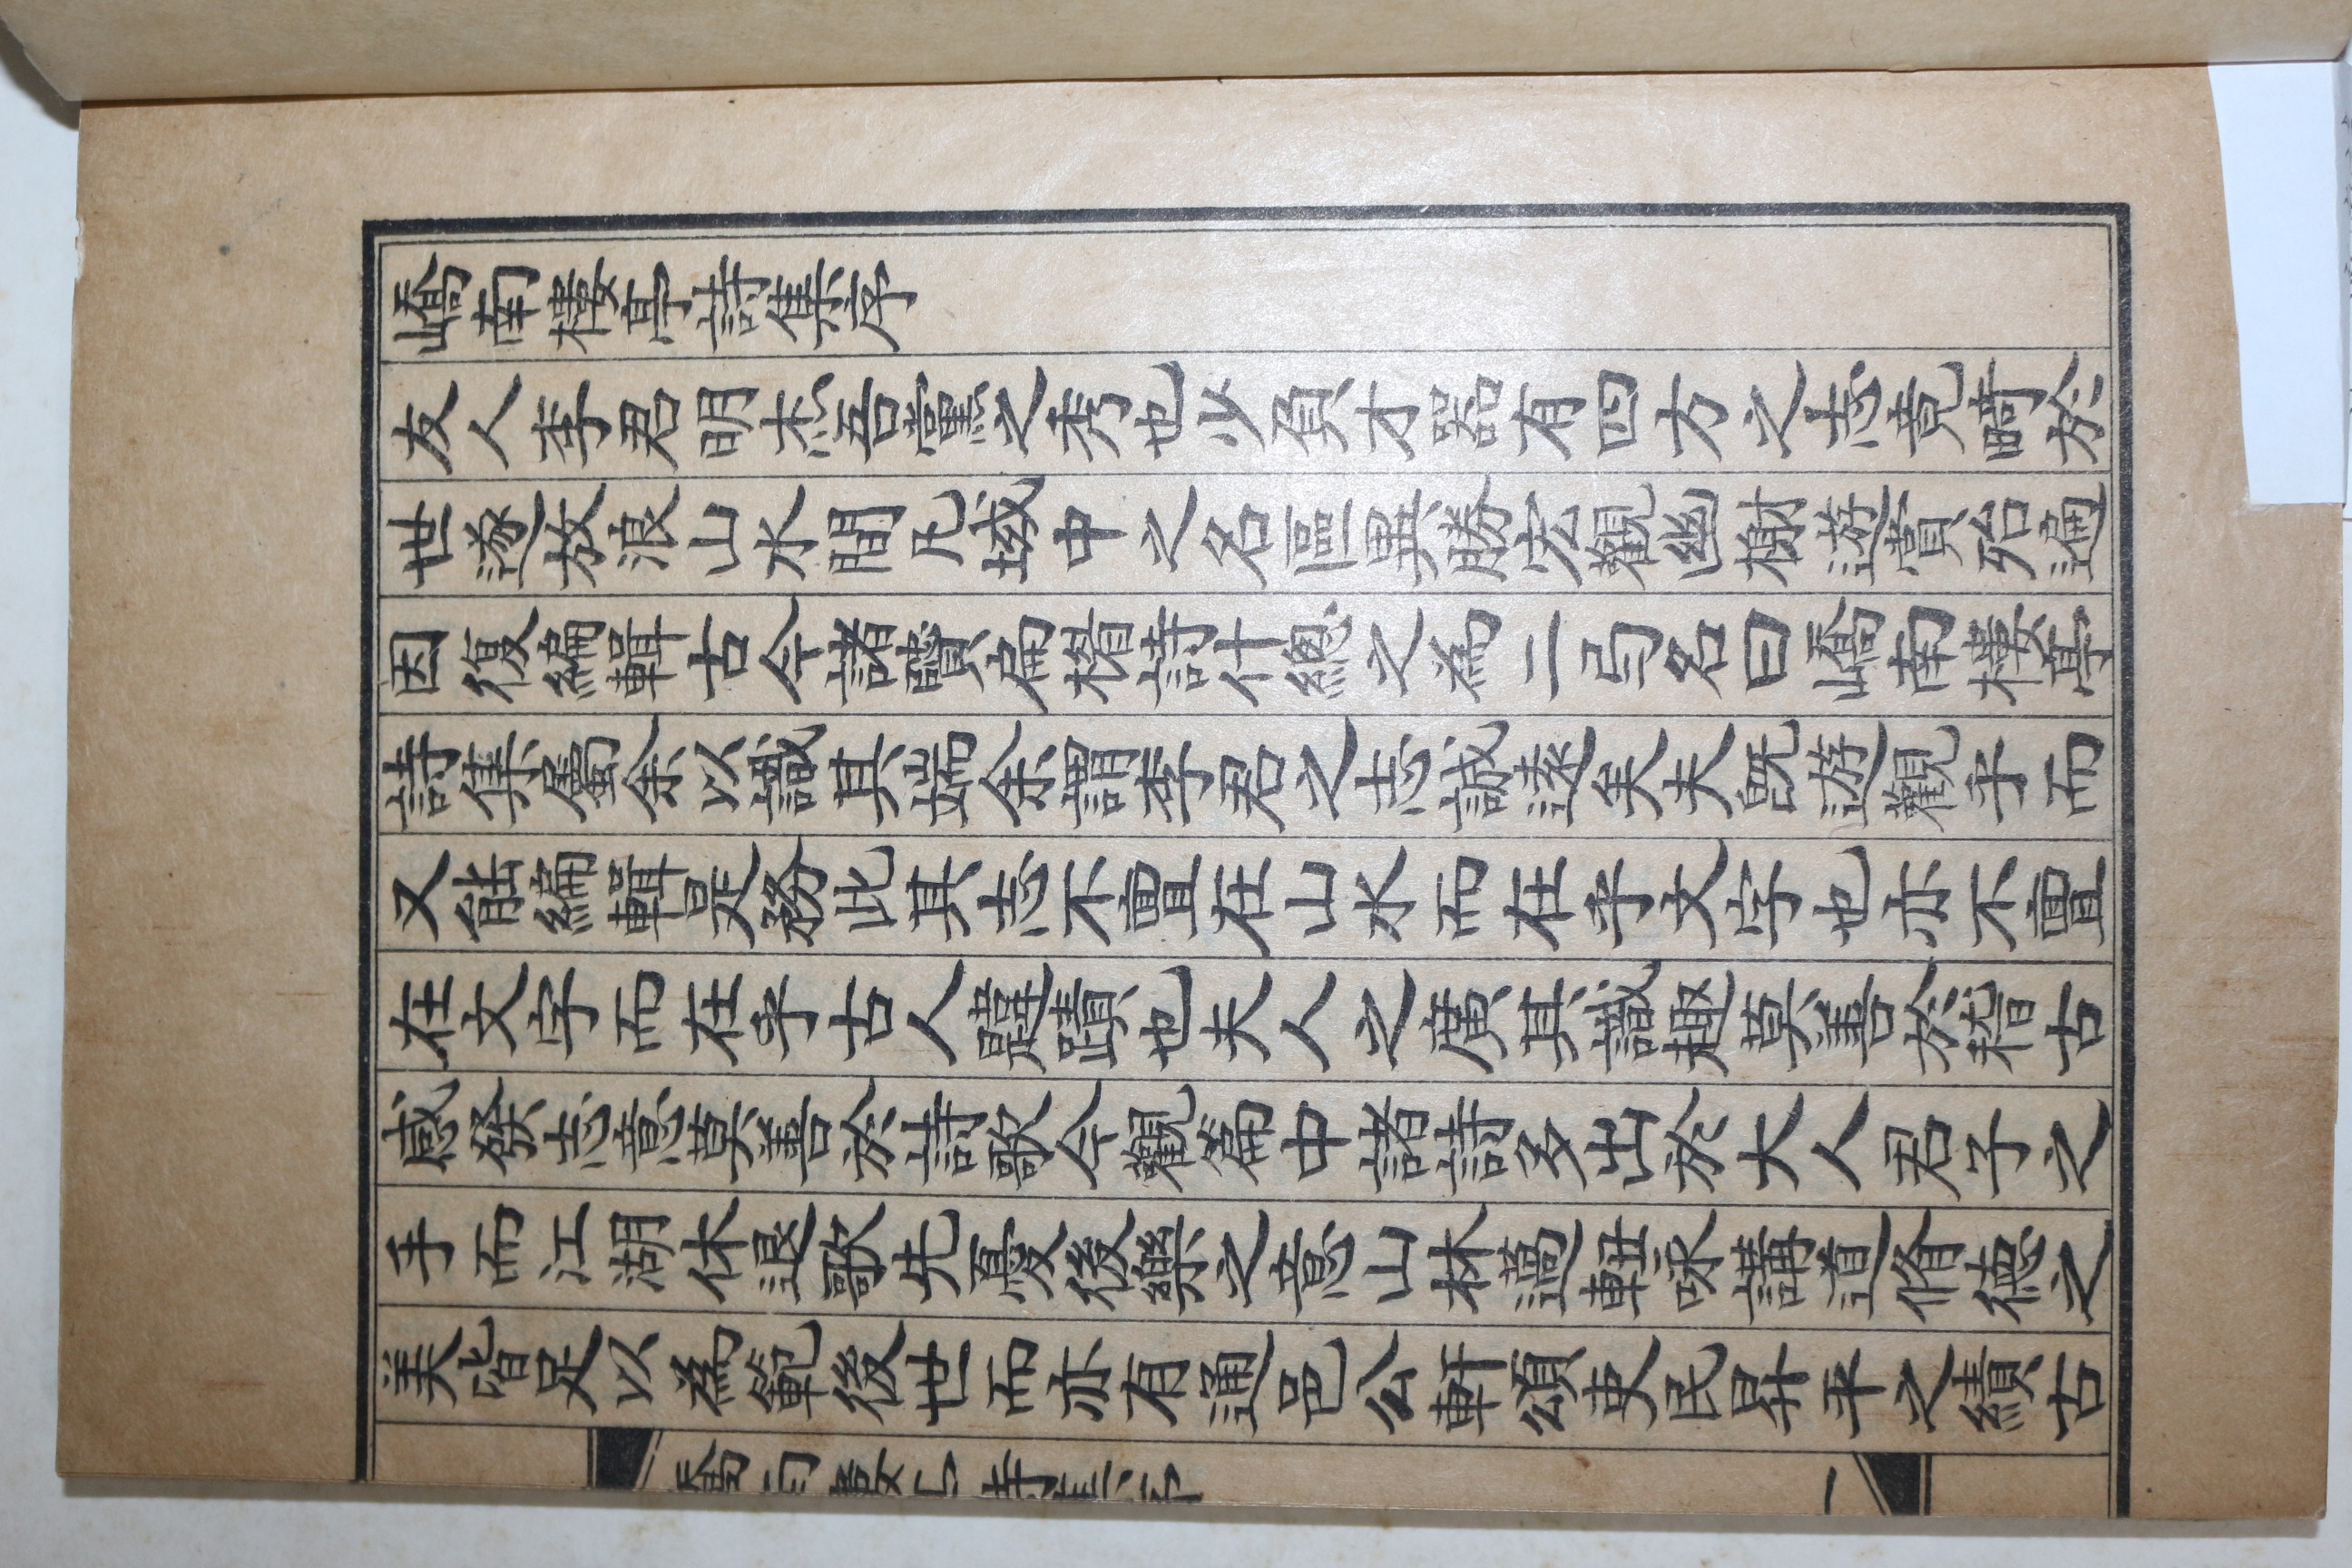 嶠南樓亭詩集序
友人李君明杰吾黨之秀也少負才器有四方之志竟畸於
世遂放浪山水間凡域中之名區異勝宏觀幽榭遊賞殆遍
因復編輯古今諸贒扁楣詩什總之為二弓名曰嶠南樓亭
詩集屬余以識其端余謂李君之志誠遠矣夫旣遊觀乎而
又能編輯是務此其志不亶在山水而在乎文字也亦不亶
在文字而在乎古人躔蹟也夫人之廣其識趣莫善於稽古
感發志意莫善於詩歌今觀篇中諸詩多出於大人君子之
手而江湖休退歌先憂後樂之意山林薖軸咏講道脩德之
美皆足以為範後世而亦有通邑公軒頌吏民昇平之績古
嶠南樓亭詩集序 一